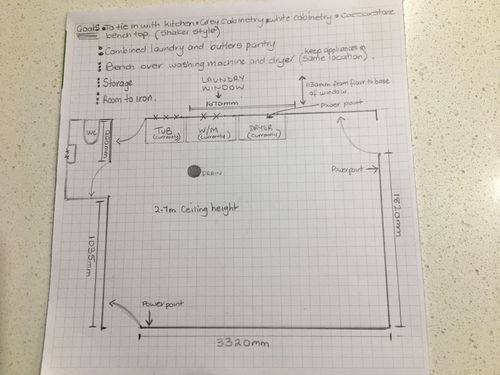 Goals • To tie in with kitchen • Grey Cabinetry • white cabinetry • Caesarstone
bench top. (Shaker style)
• Combined laundry and butlers pantry
• Bench over washing machine and dryer (Keep appliances in
same location).
• Storage
• Room to Iron.
LAUNDRY
WINDOW
1670mm
1130mm from floor to base
of window.
Power point
WC
TUB
(currently)
W/M
(currently)
DRYER
(currently)
DRAIN
Powerpoint
2.7m Ceiling height
1035mm
1820mm
Powerpoint
3320mm